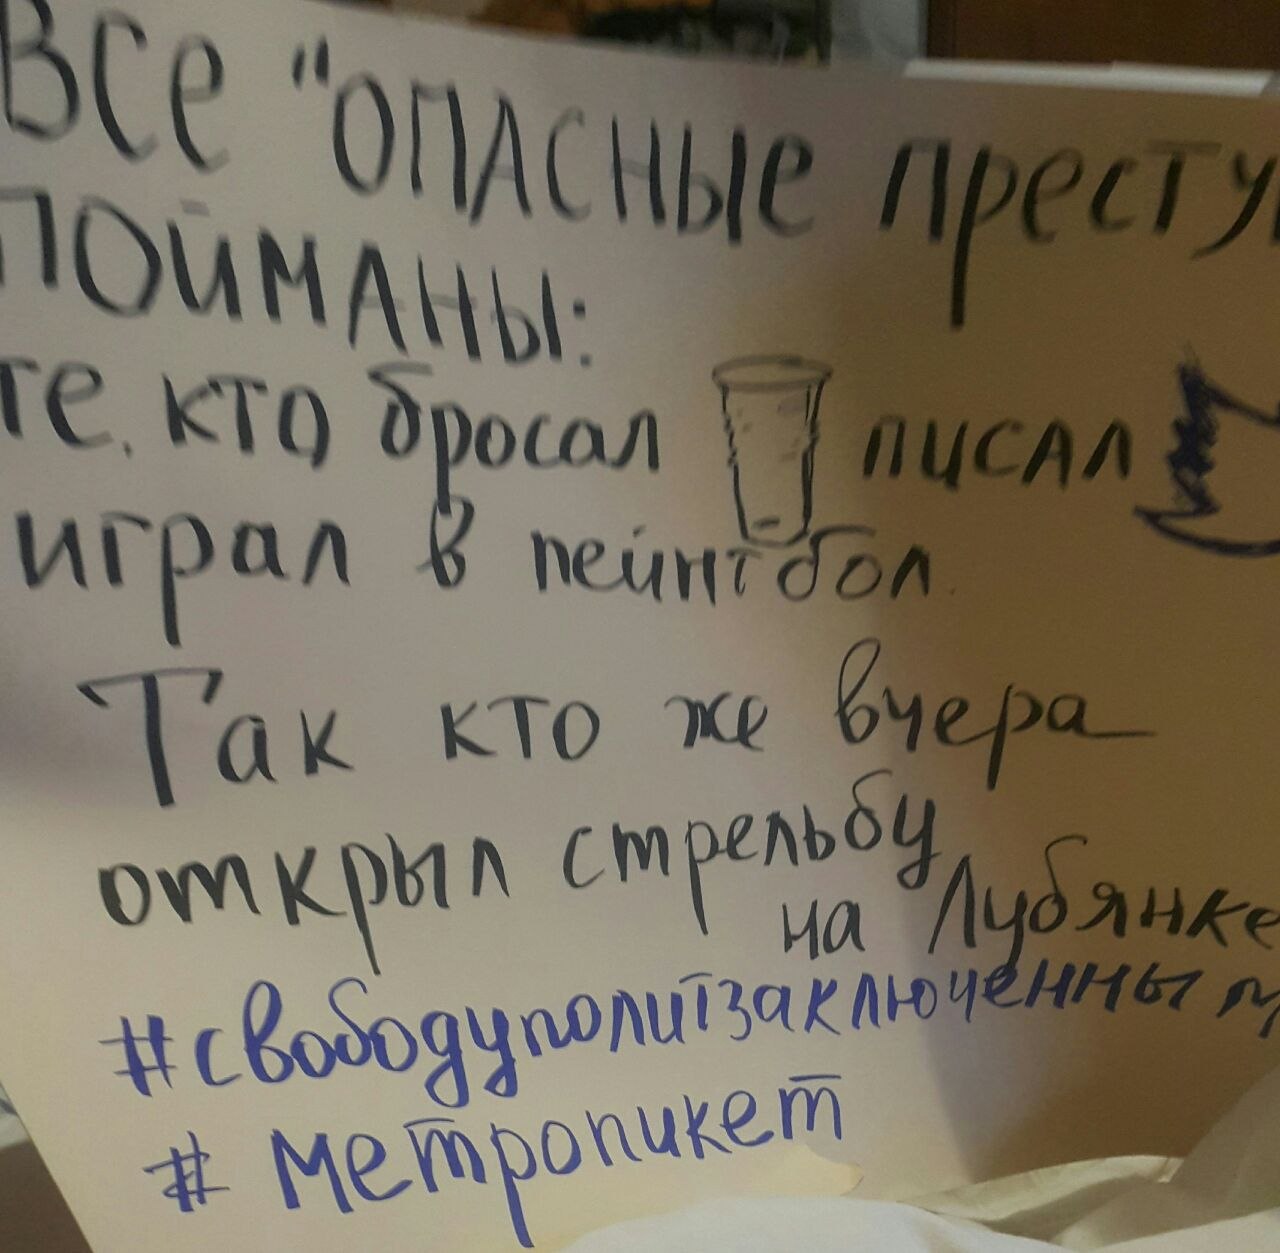 Все "ОПАСНЫе престу
ПОЙМАНЫ:
те, кто бросал писал
играл в пейнтбол.
Так кто же вчера
открыл стрельбу
на Лубянке
#свободуполитзаключенным
# метропикет